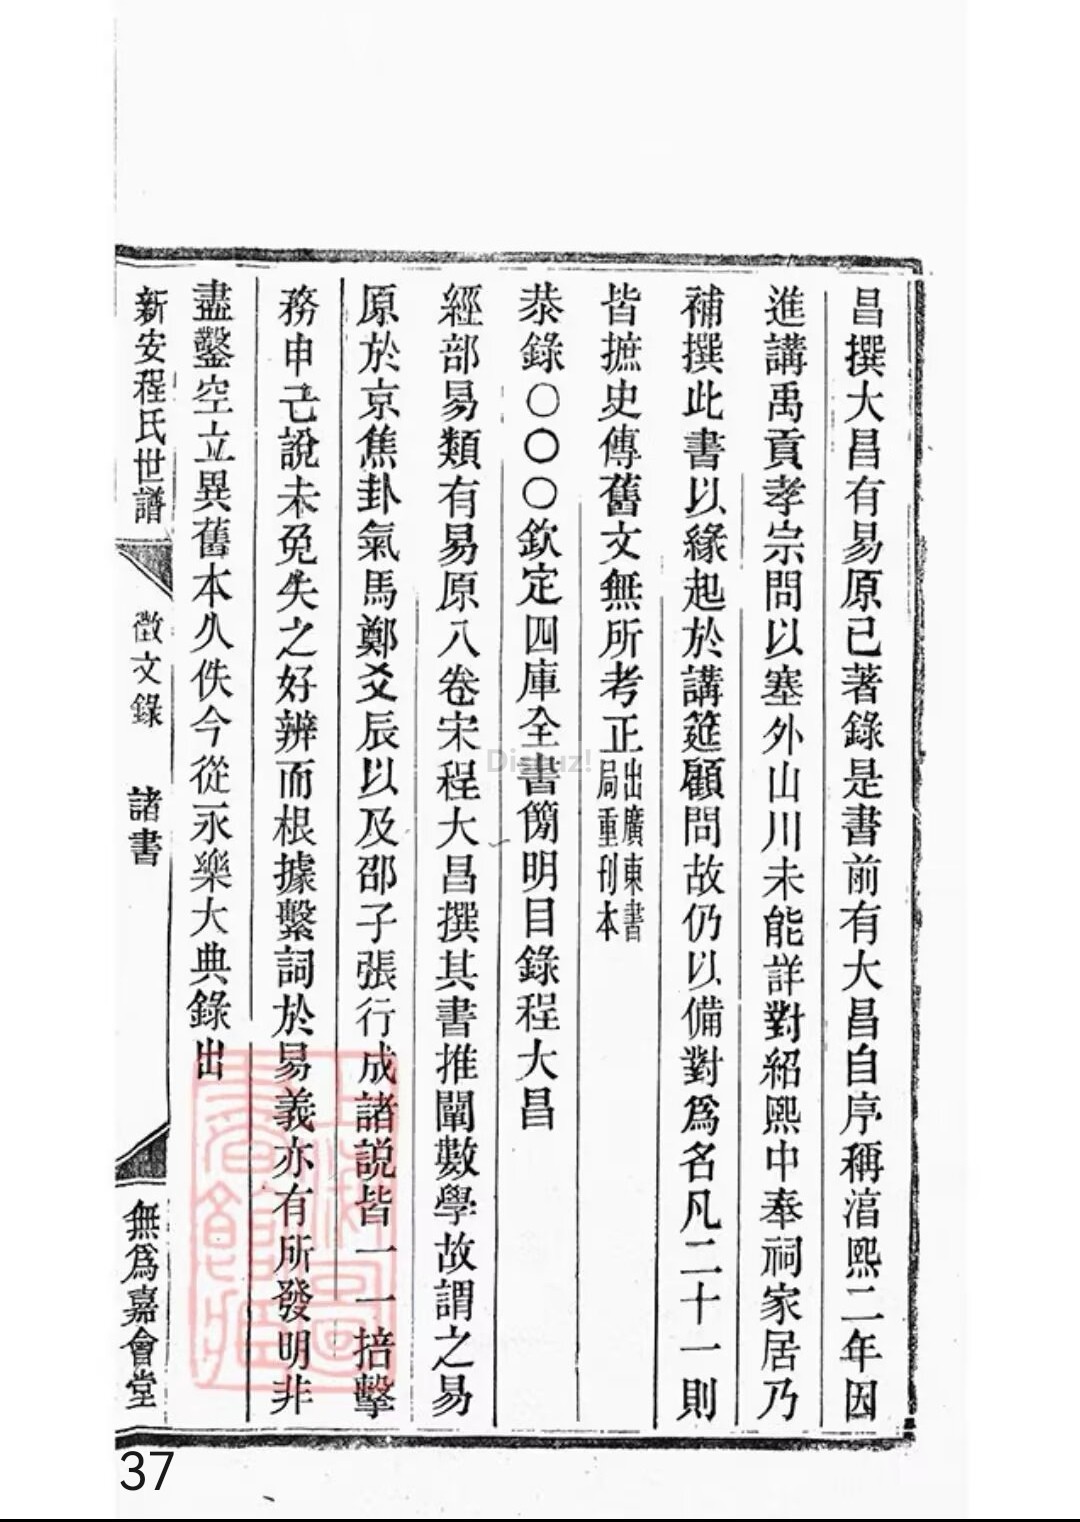 昌撰大昌有易原已著錄是書前有大昌自序稱淳熙二年因
進講禹貢孝宗問以塞外山川未能詳對紹熙中奉祠家居乃
補撰此書以緣起於講筵顧問故仍以備對爲名凡二十一則
皆摭史傳舊文無所考正出廣東書局重刊本
恭錄〇〇〇欽定四庫全書簡明目錄程大昌
經部易類有易原八卷宋程大昌撰其書推闡數學故謂之易
原於京焦卦氣馬鄭爻辰以及邵子張行成諸説皆一一掊擊
務申己說未免失之好辨而根據繫詞於易義亦有所發明非
盡鑿空立異舊本久佚今從永樂大典錄出
新安程氏世譜 徵文錄 諸書 無爲嘉會堂
Discuz!
37